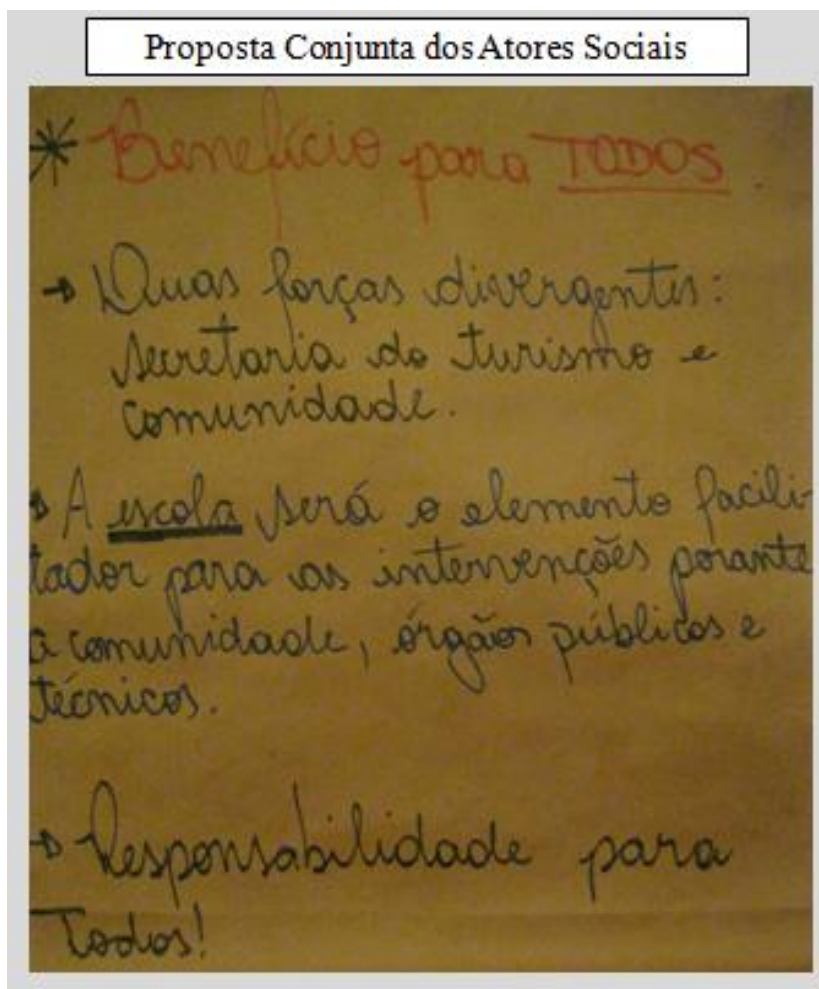 Proposta Conjunta dos Atores Sociais
* Benefício para TODOS.
→ Duas forças divergentes:
secretaria do turismo e
comunidade.
→ A escola será o elemento facili-
tador para as intervenções perante
a comunidade, órgãos públicos e
técnicos.
→ Responsabilidade para
Todos!